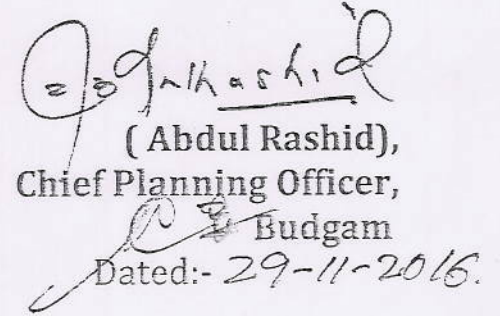 ( Abdul Rashid),
Chief Planning Officer,
Budgam
Dated:- 29-11-2016.